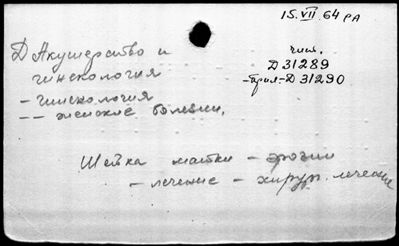 15.VII.64 РА
Д Акушерство и
гинекология
чит.
Д 31289
- Д 31290
- гинекология
-- женские болезни.
Шейка матки - эрозии
- лечение - хирур. лечение